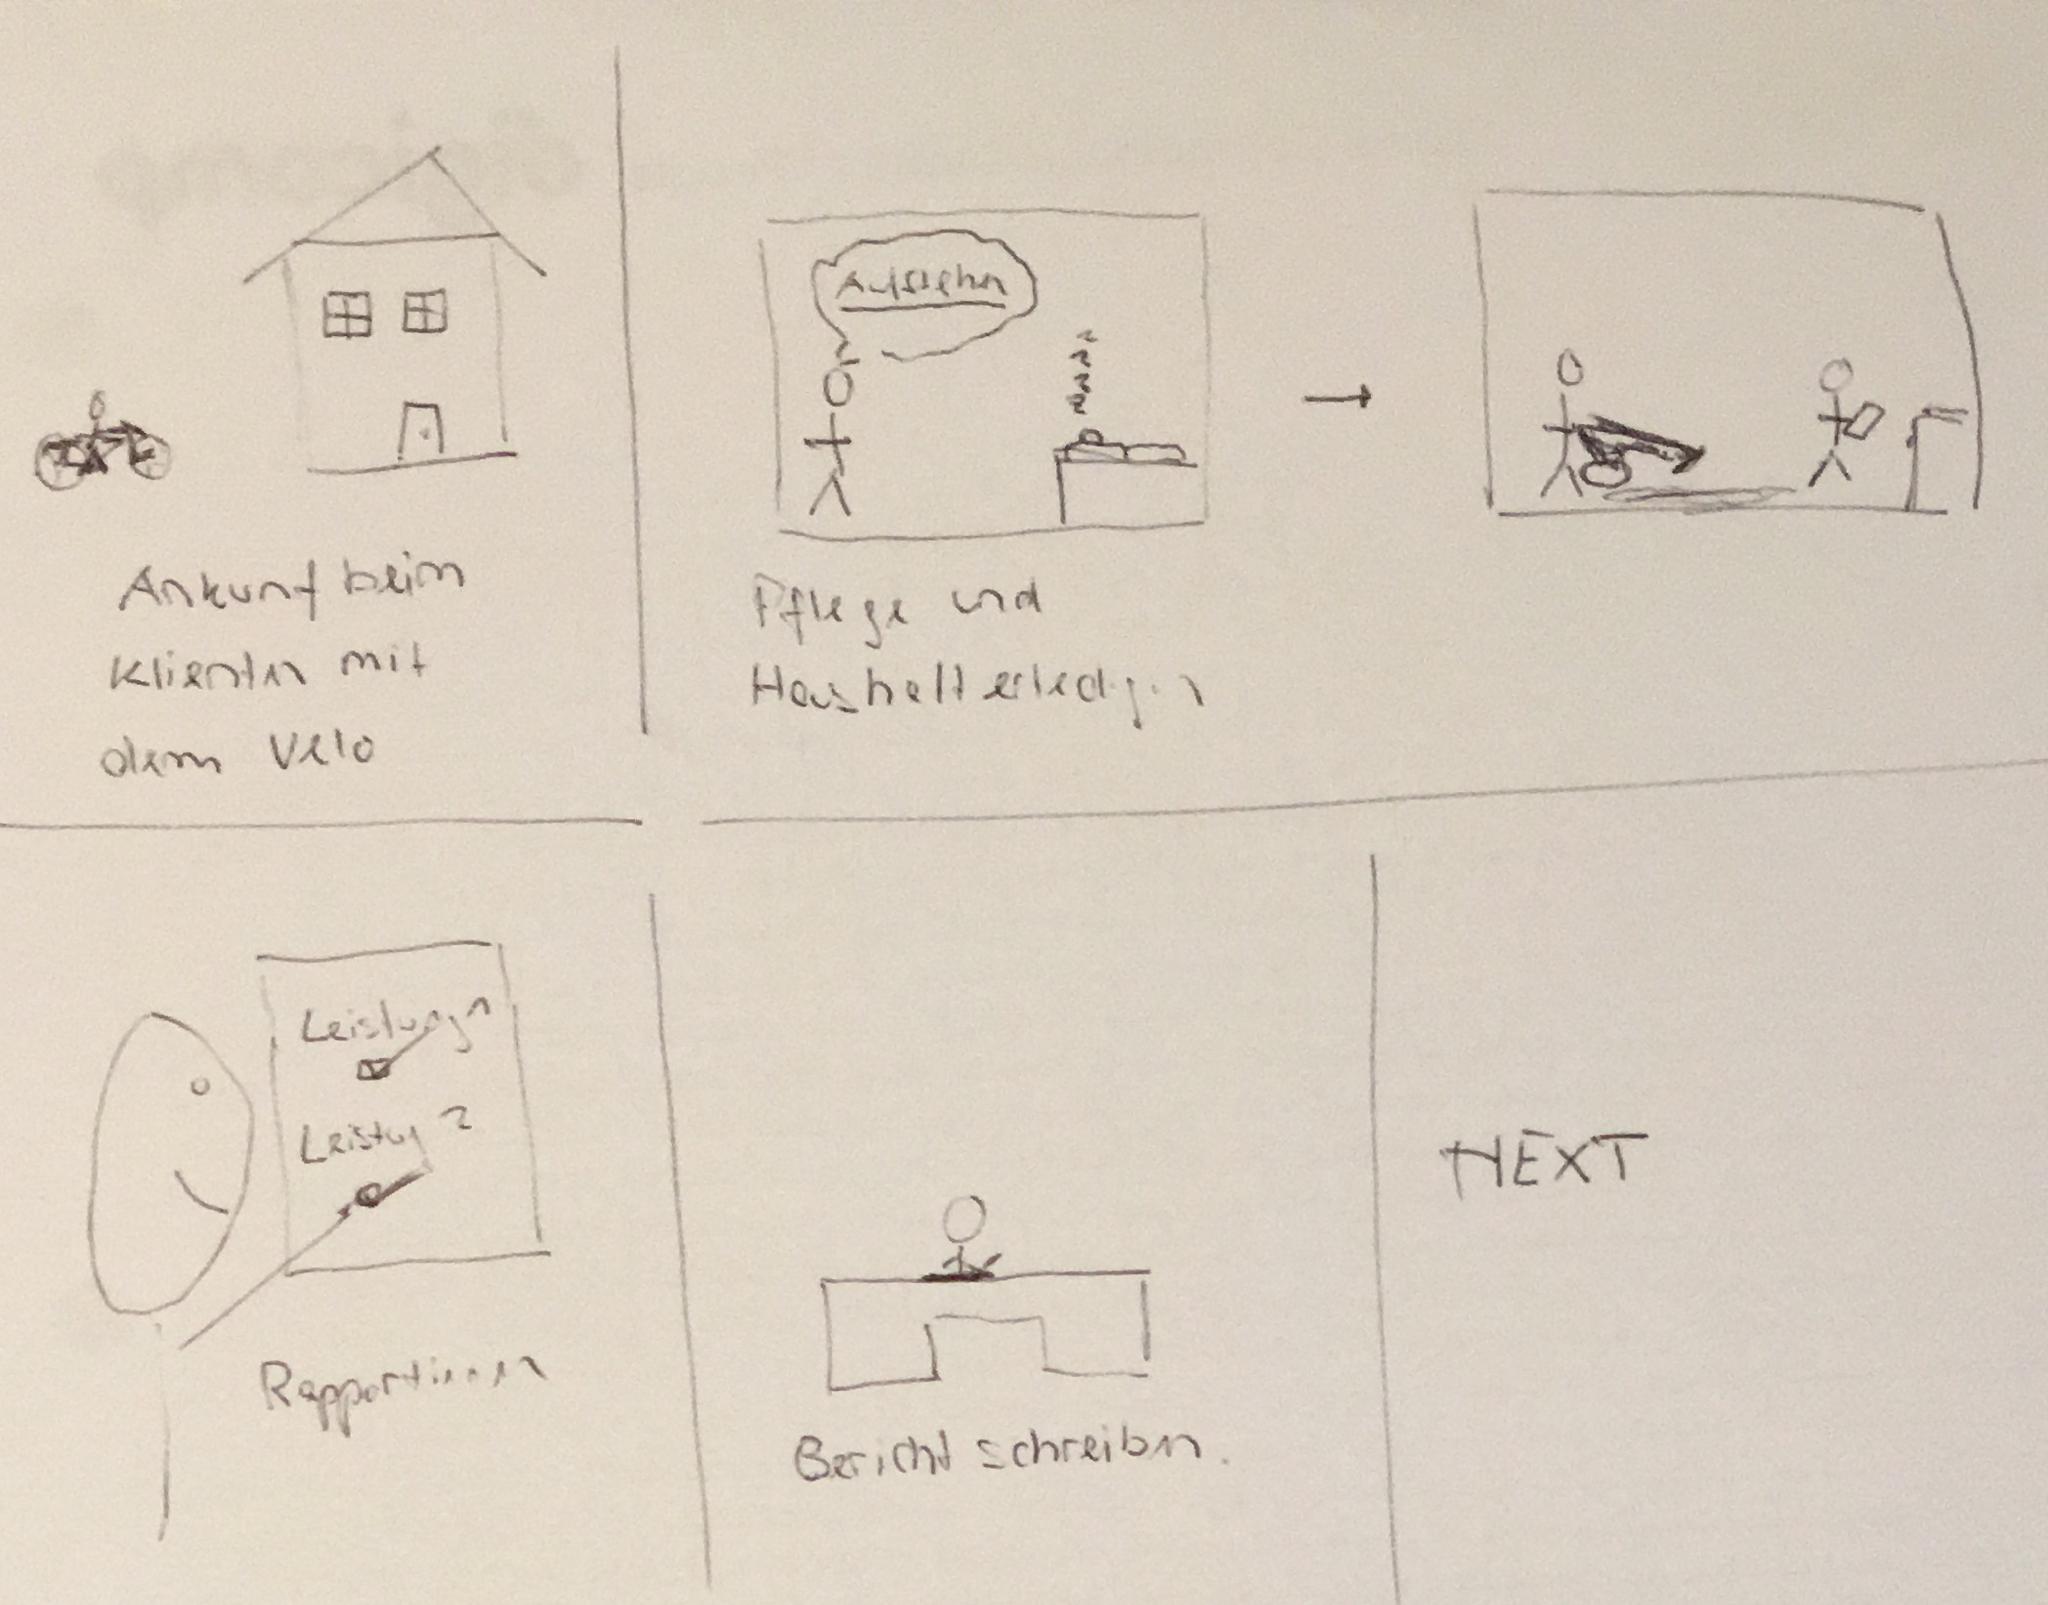 Aufstehn
Ankunf beim
Klientin mit
dem Velo
Pflege und
Haushalt erledigen
Leistung 1
Leistug 2
Rapportieren
Bericht schreiben.
NEXT